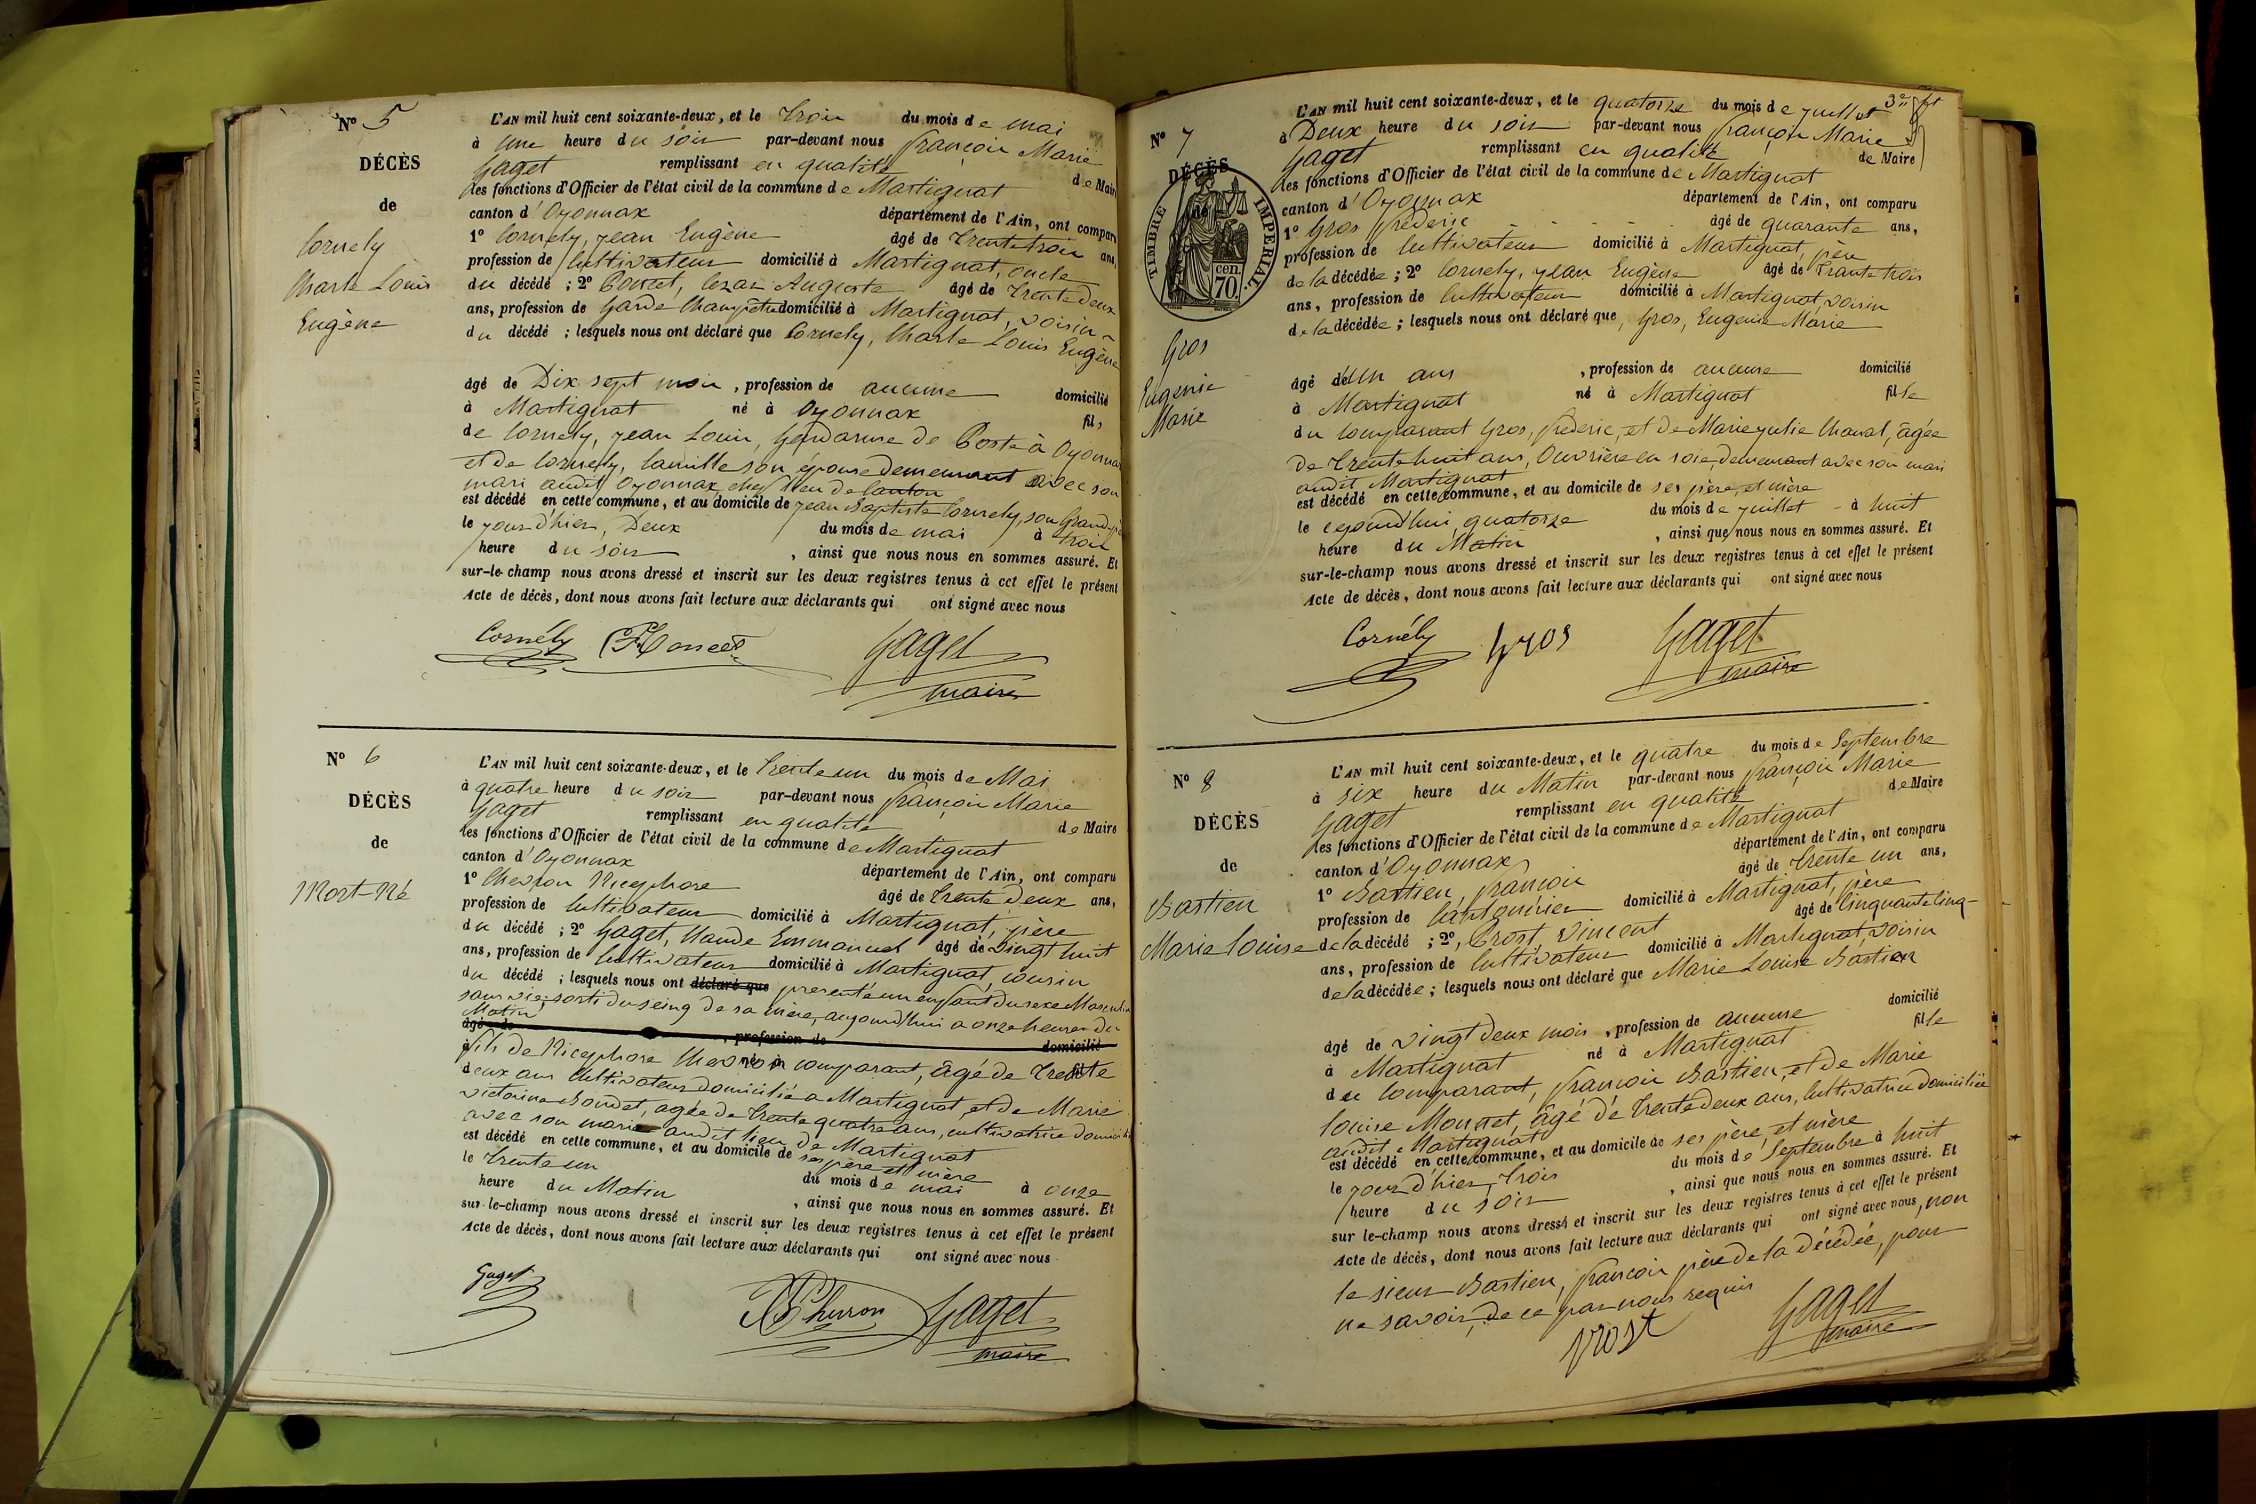 N° 5
DÉCÈS
de
Cornely
Charle Louis
Eugène
L'AN mil huit cent soixante-deux, et le trois du mois de mai
à une heure du soir par-devant nous françois Marie
Gaget remplissant en qualité de Maire
les fonctions d'Officier de l'état civil de la commune de Martignat
canton d'Oyonnax département de l'Ain, ont comparu
1° Cornely, jean Eugène âgé de trente trois ans,
profession de Cultivateur domicilié à Martignat, oncle
du décédé ; 2° Poncet, Cezar Auguste âgé de trente deux
ans, profession de Garde Champêtre domicilié à Martignat, voisin
du décédé ; lesquels nous ont déclaré que Cornely, Charle Louis Eugène
âgé de Dix sept mois, profession de aucune domicilié
à Martignat né à Oyonnax fils
de Cornely, jean Louis, Gendarme de Poste à Oyonnax
et de Cornely, Camille son épouse demeurant avec son
mari audit Oyonnax, chef lieu de Canton
est décédé en cette commune, et au domicile de jean Baptiste Cornely, son Grand-père
le jour d'hier, Deux du mois de mai à trois
heure du soir, ainsi que nous nous en sommes assuré. Et
sur-le-champ nous avons dressé et inscrit sur les deux registres tenus à cet effet le présent
Acte de décès, dont nous avons fait lecture aux déclarants qui ont signé avec nous
Cornély Poncet Gaget
maire
N° 6
DÉCÈS
de
Mort-Né
L'AN mil huit cent soixante-deux, et le trente un du mois de Mai
à quatre heure du soir par-devant nous françois Marie
Gaget remplissant en qualité de Maire
les fonctions d'Officier de l'état civil de la commune de Martignat
canton d'Oyonnax département de l'Ain, ont comparu
1° Chevron Nicephore âgé de trente Deux ans,
profession de Cultivateur domicilié à Martignat, père
du décédé ; 2° Gaget, Claude Emmanuel âgé de vingt huit
ans, profession de Cultivateur domicilié à Martignat, cousin
du décédé ; lesquels nous ont déclaré que presenté un enfant du sexe Masculin
sans vie, sorti du seing de sa mère, aujourd'hui a onze heures du
Matin
âgé de , profession de domicilié
à né à fil
fils de Nicephore Chevron comparant, âgé de trente
deux ans Cultivateur domicilié a Martignat, et de Marie
victorine Bondet, agée de trente quatre ans, cultivatrice domiciliée
avec son mari audit lieu de Martignat
est décédé en cette commune, et au domicile de ses père et mère
le trente un du mois de mai à onze
heure du Matin, ainsi que nous nous en sommes assuré. Et
sur-le-champ nous avons dressé et inscrit sur les deux registres tenus à cet effet le présent
Acte de décès, dont nous avons fait lecture aux déclarants qui ont signé avec nous
Gaget Chevron Gaget
maire
3e ft
N° 7
DÉCÈS
de
TIMBRE IMPERIAL.
70. cen.
Gros
Eugenie
Marie
L'AN mil huit cent soixante-deux, et le quatorze du mois de juillet
à Deux heure du soir par-devant nous françois Marie
Gaget remplissant en qualité de Maire
les fonctions d'Officier de l'état civil de la commune de Martignat
canton d'Oyonnax département de l'Ain, ont comparu
1° Gros frédéric âgé de quarante ans,
profession de Cultivateur domicilié à Martignat, père
de la décédée ; 2° Cornely, jean Eugène âgé de trante trois
ans, profession de Cultivateur domicilié à Martignat, voisin
de la décédée ; lesquels nous ont déclaré que, Gros, Eugenie Marie
âgé de un ans, profession de aucune domicilié
à Martignat né à Martignat fille
du Comparant Gros, frederic, et de Marie julie Chanal, âgée
de trente huit ans, Ouvrière en soie, demeurant avec son mari
audit Martignat
est décédé en cette commune, et au domicile de ses père et mère
le cejourd'hui, quatorze du mois de juillet à huit
heure du Matin, ainsi que nous nous en sommes assuré. Et
sur-le-champ nous avons dressé et inscrit sur les deux registres tenus à cet effet le présent
Acte de décès, dont nous avons fait lecture aux déclarants qui ont signé avec nous
Cornély Gros Gaget
maire
N° 8
DÉCÈS
de
Bastien
Marie Louise
L'AN mil huit cent soixante-deux, et le quatre du mois de Septembre
à six heure du Matin par-devant nous françois Marie
Gaget remplissant en qualité de Maire
les fonctions d'Officier de l'état civil de la commune de Martignat
canton d'Oyonnax département de l'Ain, ont comparu
1° Bastien, françois âgé de trente un ans,
profession de Cantonnier domicilié à Martignat, père
de la décédé ; 2°, Prost, vincent âgé de Cinquante Cinq
ans, profession de Cultivateur domicilié à Martignat, voisin
de la décédée ; lesquels nous ont déclaré que Marie Louise Bastien
âgé de vingt deux mois, profession de aucune domicilié
à Martignat né à Martignat fille
du Comparant, françois Bastien, et de Marie
Louise Monnet, âgé de trente deux ans, Cultivatrice domiciliée
audit Martignat
est décédé en cette commune, et au domicile de ses père et mère
le jour d'hier, trois du mois de Septembre à huit
heure du soir, ainsi que nous nous en sommes assuré. Et
sur le-champ nous avons dressé et inscrit sur les deux registres tenus à cet effet le présent
Acte de décès, dont nous avons fait lecture aux déclarants qui ont signé avec nous, non
le sieur Bastien, françois père de la décédée, pour
ne savoir, de ce par nous requis
prost Gaget
maire